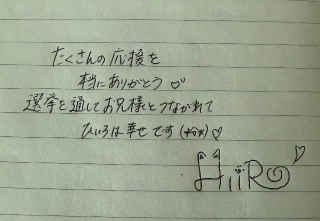 たくさんの応援を
本当にありがとう♡
選挙を通してお兄様とつながれて
ひいろは幸せです(*^^*)♡
HiiRO♡